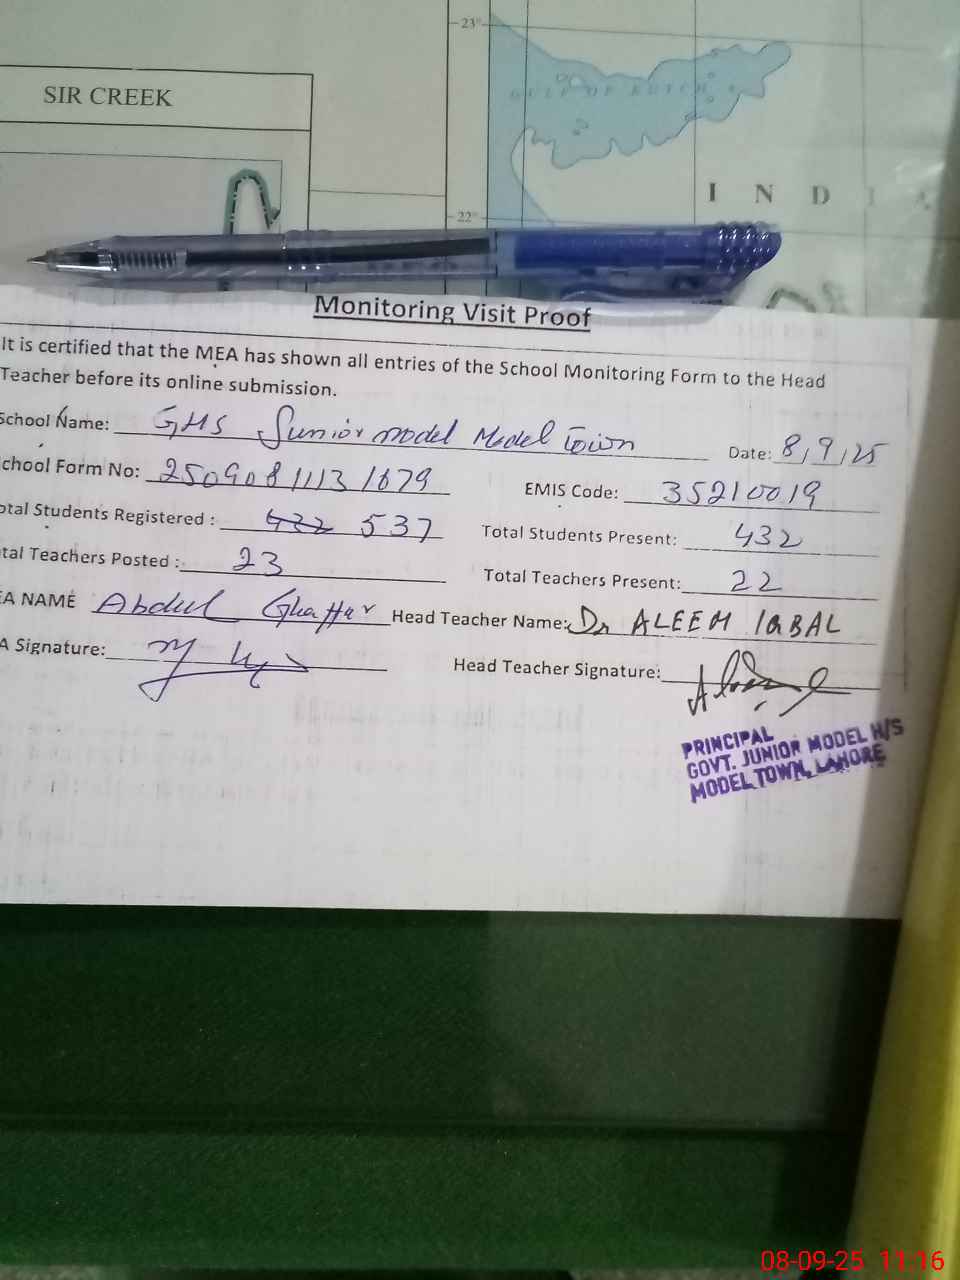 23°
SIR CREEK
GULF OF KUTCH
I N D I A
22°
Monitoring Visit Proof
It is certified that the MEA has shown all entries of the School Monitoring Form to the Head
Teacher before its online submission.
School Name: GHS Junior model Model Town Date: 8/9/25
chool Form No: 2509081113 1679 EMIS Code: 35210019
otal Students Registered : 432 537 Total Students Present: 432
tal Teachers Posted : 23 Total Teachers Present: 22
EA NAME Abdul Ghaffar Head Teacher Name: Dr ALEEM IQBAL
A Signature: Head Teacher Signature:
PRINCIPAL
GOVT. JUNIOR MODEL H/S
MODEL TOWN, LAHORE
08-09-25 11:16